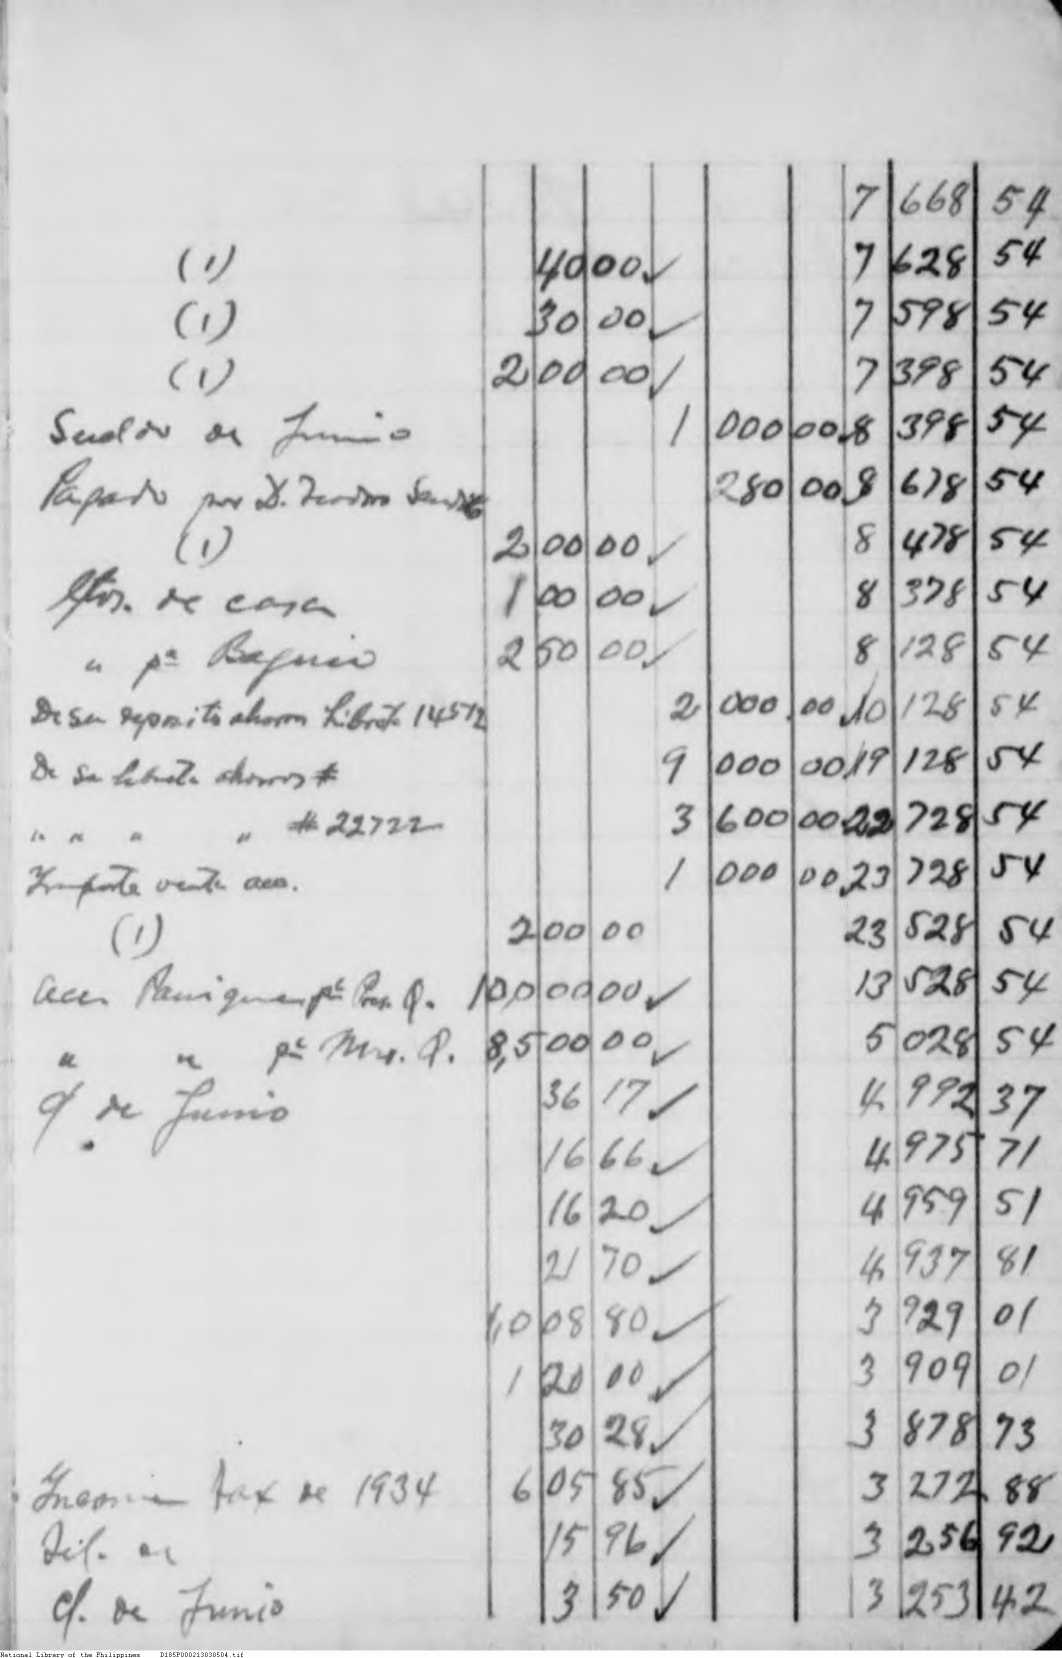 7 668 54
(1) 40 00 ✓ 7 628 54
(1) 30 00 ✓ 7 598 54
(1) 200 00 ✓ 7 398 54
Sueldo de Junio 1 000 00 8 398 54
Pagado por D. Teodoro 280 00 8 678 54
(1) 200 00 ✓ 8 478 54
Gtos. de casa 100 00 ✓ 8 378 54
" pª Baguio 250 00 ✓ 8 128 54
De su deposito ahorros Libreta 14572 2 000 00 10 128 54
De su libreta ahorros # 9 000 00 19 128 54
" " " " # 22722 3 600 00 22 728 54
Importe venta acc. 1 000 00 23 728 54
(1) 200 00 23 528 54
Acc. Paniqui pª Pres. Q. 10,000 00 ✓ 13 528 54
" " pª Mrs. Q. 8,500 00 ✓ 5 028 54
c/ de Junio 36 17 ✓ 4 992 37
16 66 ✓ 4 975 71
16 20 ✓ 4 959 51
21 70 ✓ 4 937 81
1,008 80 ✓ 3 929 01
1 20 00 ✓ 3 909 01
30 28 ✓ 3 878 73
Income tax de 1934 605 85 ✓ 3 272 88
15 96 ✓ 3 256 92
c/. de Junio 3 50 ✓ 3 253 42
National Library of the Philippines D185P000213038504.tif